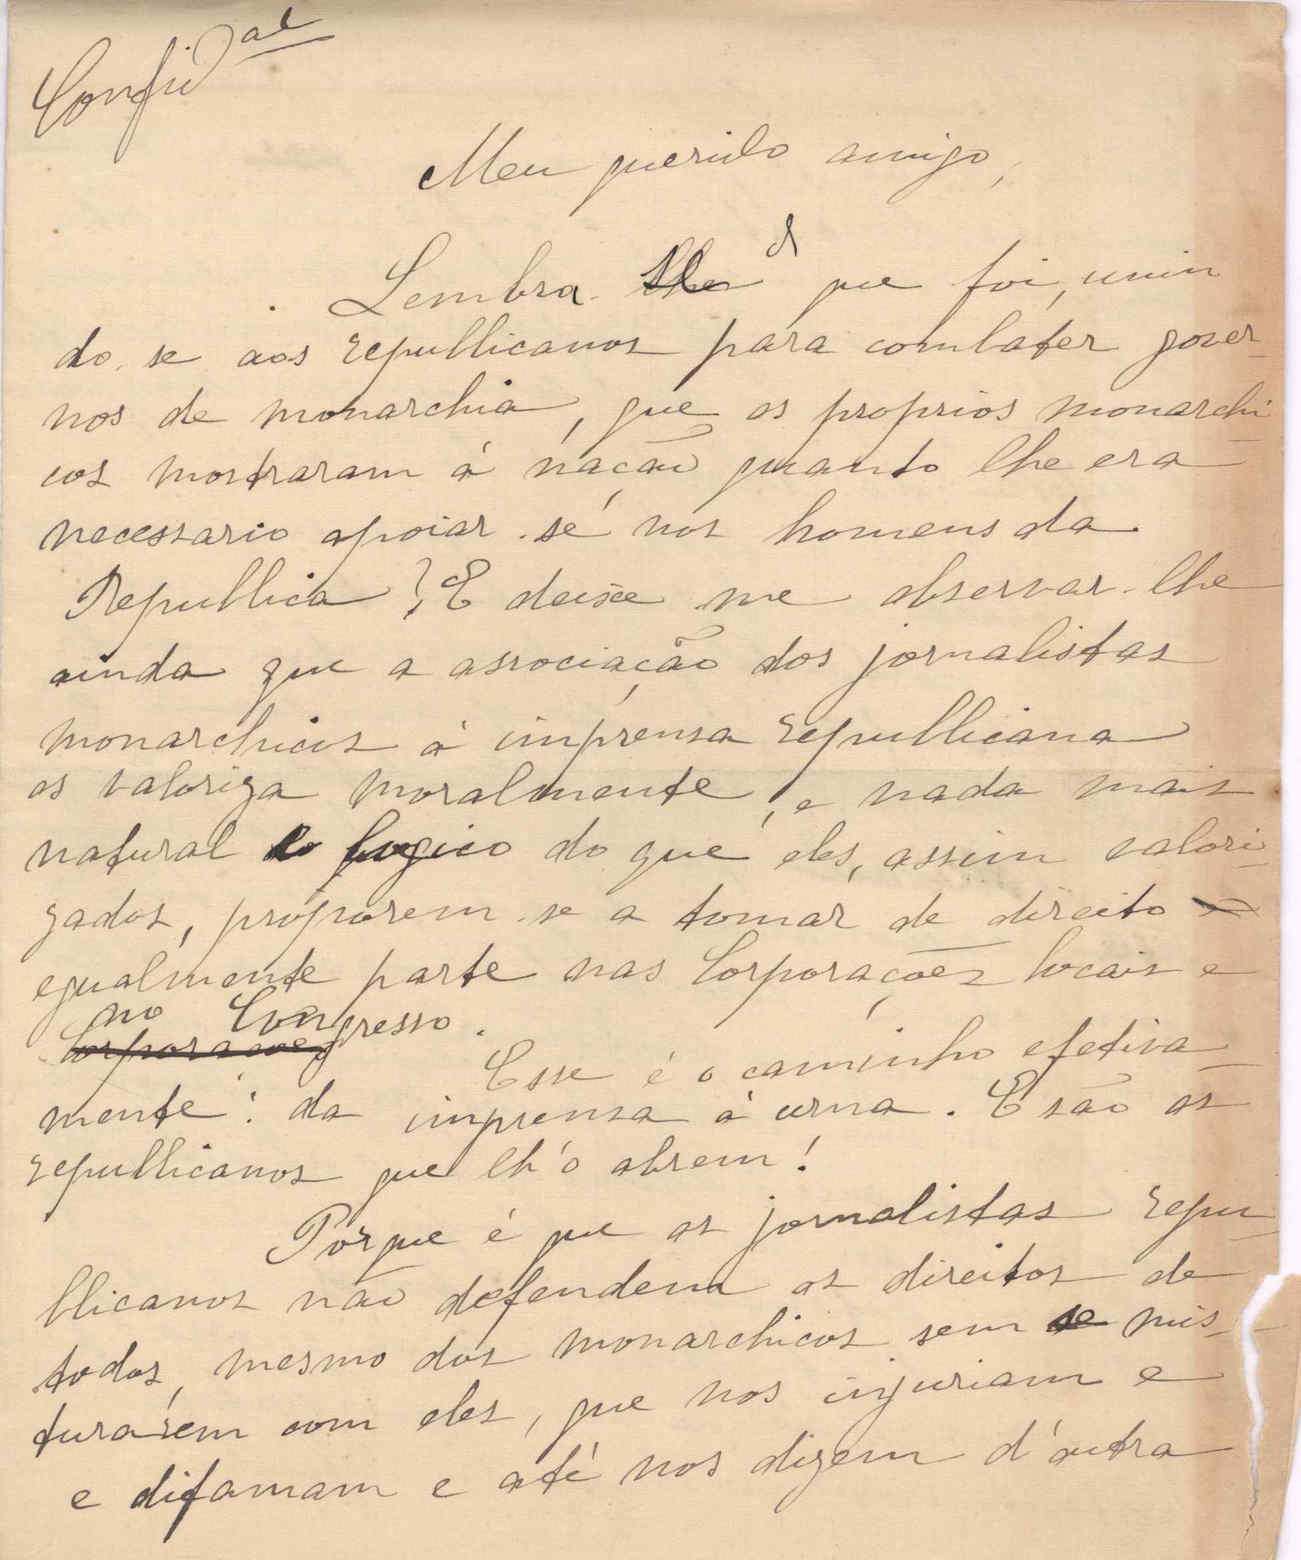 Confid.al
Meu querido amigo,
Lembra-lhe de que foi, unin
do-se aos republicanos para combater gover-
nos de monarchia, que os proprios monarchi-
cos mostraram á nação quanto lhe era
necessario apoiar-se nos homens da
Republica? E deixe-me observar-lhe
ainda que a associação dos jornalistas
monarchicos á imprensa republicana
os valoriza moralmente, e nada mais
natural e logico do que eles, assim valori-
zados, proporem-se a tomar de direito
egualmente parte nas Corporações locais e
no Congresso.
Corporações
Esse é o caminho efetiva-
mente: da imprensa á urna. E são os
republicanos que lh'o abrem!
Porque é que os jornalistas repu-
blicanos não defendem os direitos de
todos, mesmo dos monarchicos sem se mis-
turarem com eles, que nos injuriam e
e difamam e até nos dizem d'outra